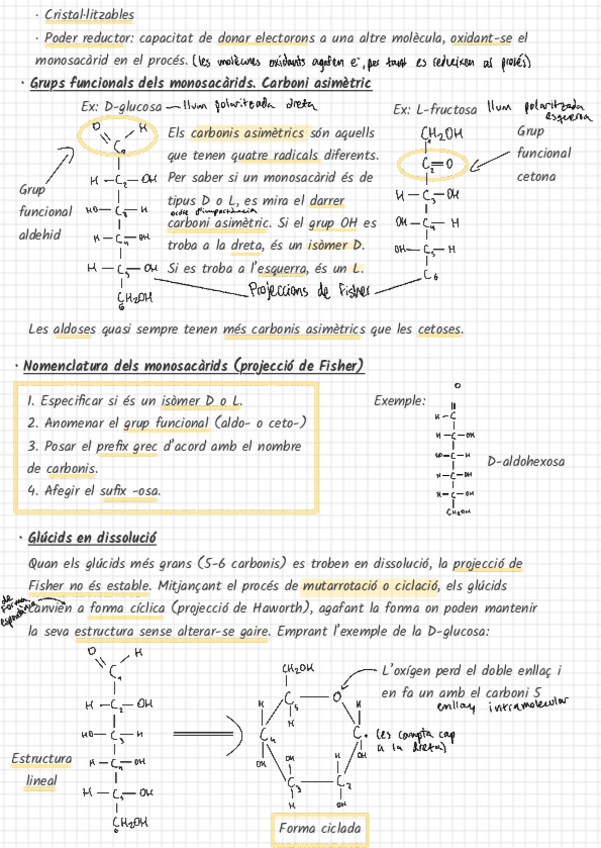 · Cristal·litzables
· Poder reductor: capacitat de donar electrons a una altre molècula, oxidant-se el
monosacàrid en el procés. (les molècules oxidants agafen e⁻, per tant es redueixen al procés)
· Grups funcionals dels monosacàrids. Carboni asimètric
Ex: D-glucosa — llum polaritzada dreta
Ex: L-fructosa llum polaritzada
esquerra
Els carbonis asimètrics són aquells
que tenen quatre radicals diferents.
Per saber si un monosacàrid és de
tipus D o L, es mira el darrer
ordre d'importància
carboni asimètric. Si el grup OH es
troba a la dreta, és un isòmer D.
Si es troba a l'esquerra, és un L.
Grup
funcional
aldehid
O H
C₁
H — C₂ — OH
HO — C₃ — H
H — C₄ — OH
H — C₅ — OH
C₆H₂OH
C₁H₂OH
C₂ = O
H — C₃ — OH
OH — C₄ — H
OH — C₅ — H
C₆
Grup
funcional
cetona
Projeccions de Fisher
Les aldoses quasi sempre tenen més carbonis asimètrics que les cetoses.
· Nomenclatura dels monosacàrids (projecció de Fisher)
1. Especificar si és un isòmer D o L.
2. Anomenar el grup funcional (aldo- o ceto-)
3. Posar el prefix grec d'acord amb el nombre
de carbonis.
4. Afegir el sufix -osa.
Exemple:
O
H — C
H — C — OH
HO — C — H
H — C — OH
H — C — OH
CH₂OH
D-aldohexosa
· Glúcids en dissolució
Quan els glúcids més grans (5-6 carbonis) es troben en dissolució, la projecció de
Fisher no és estable. Mitjançant el procés de mutarrotació o ciclació, els glúcids
de forma
espontània
canvien a forma cíclica (projecció de Haworth), agafant la forma on poden mantenir
la seva estructura sense alterar-se gaire. Emprant l'exemple de la D-glucosa:
O H
C₁
H — C₂ — OH
HO — C₃ — H
H — C₄ — OH
H — C₅ — OH
C₆H₂OH
Estructura
lineal
CH₂OH
C₅ O
H H H
C₄ C₁
OH OH H OH
C₃ C₂
H OH
L'oxígen perd el doble enllaç i
en fa un amb el carboni 5
enllaç intramolecular
(es compta cap
a la dreta)
Forma ciclada